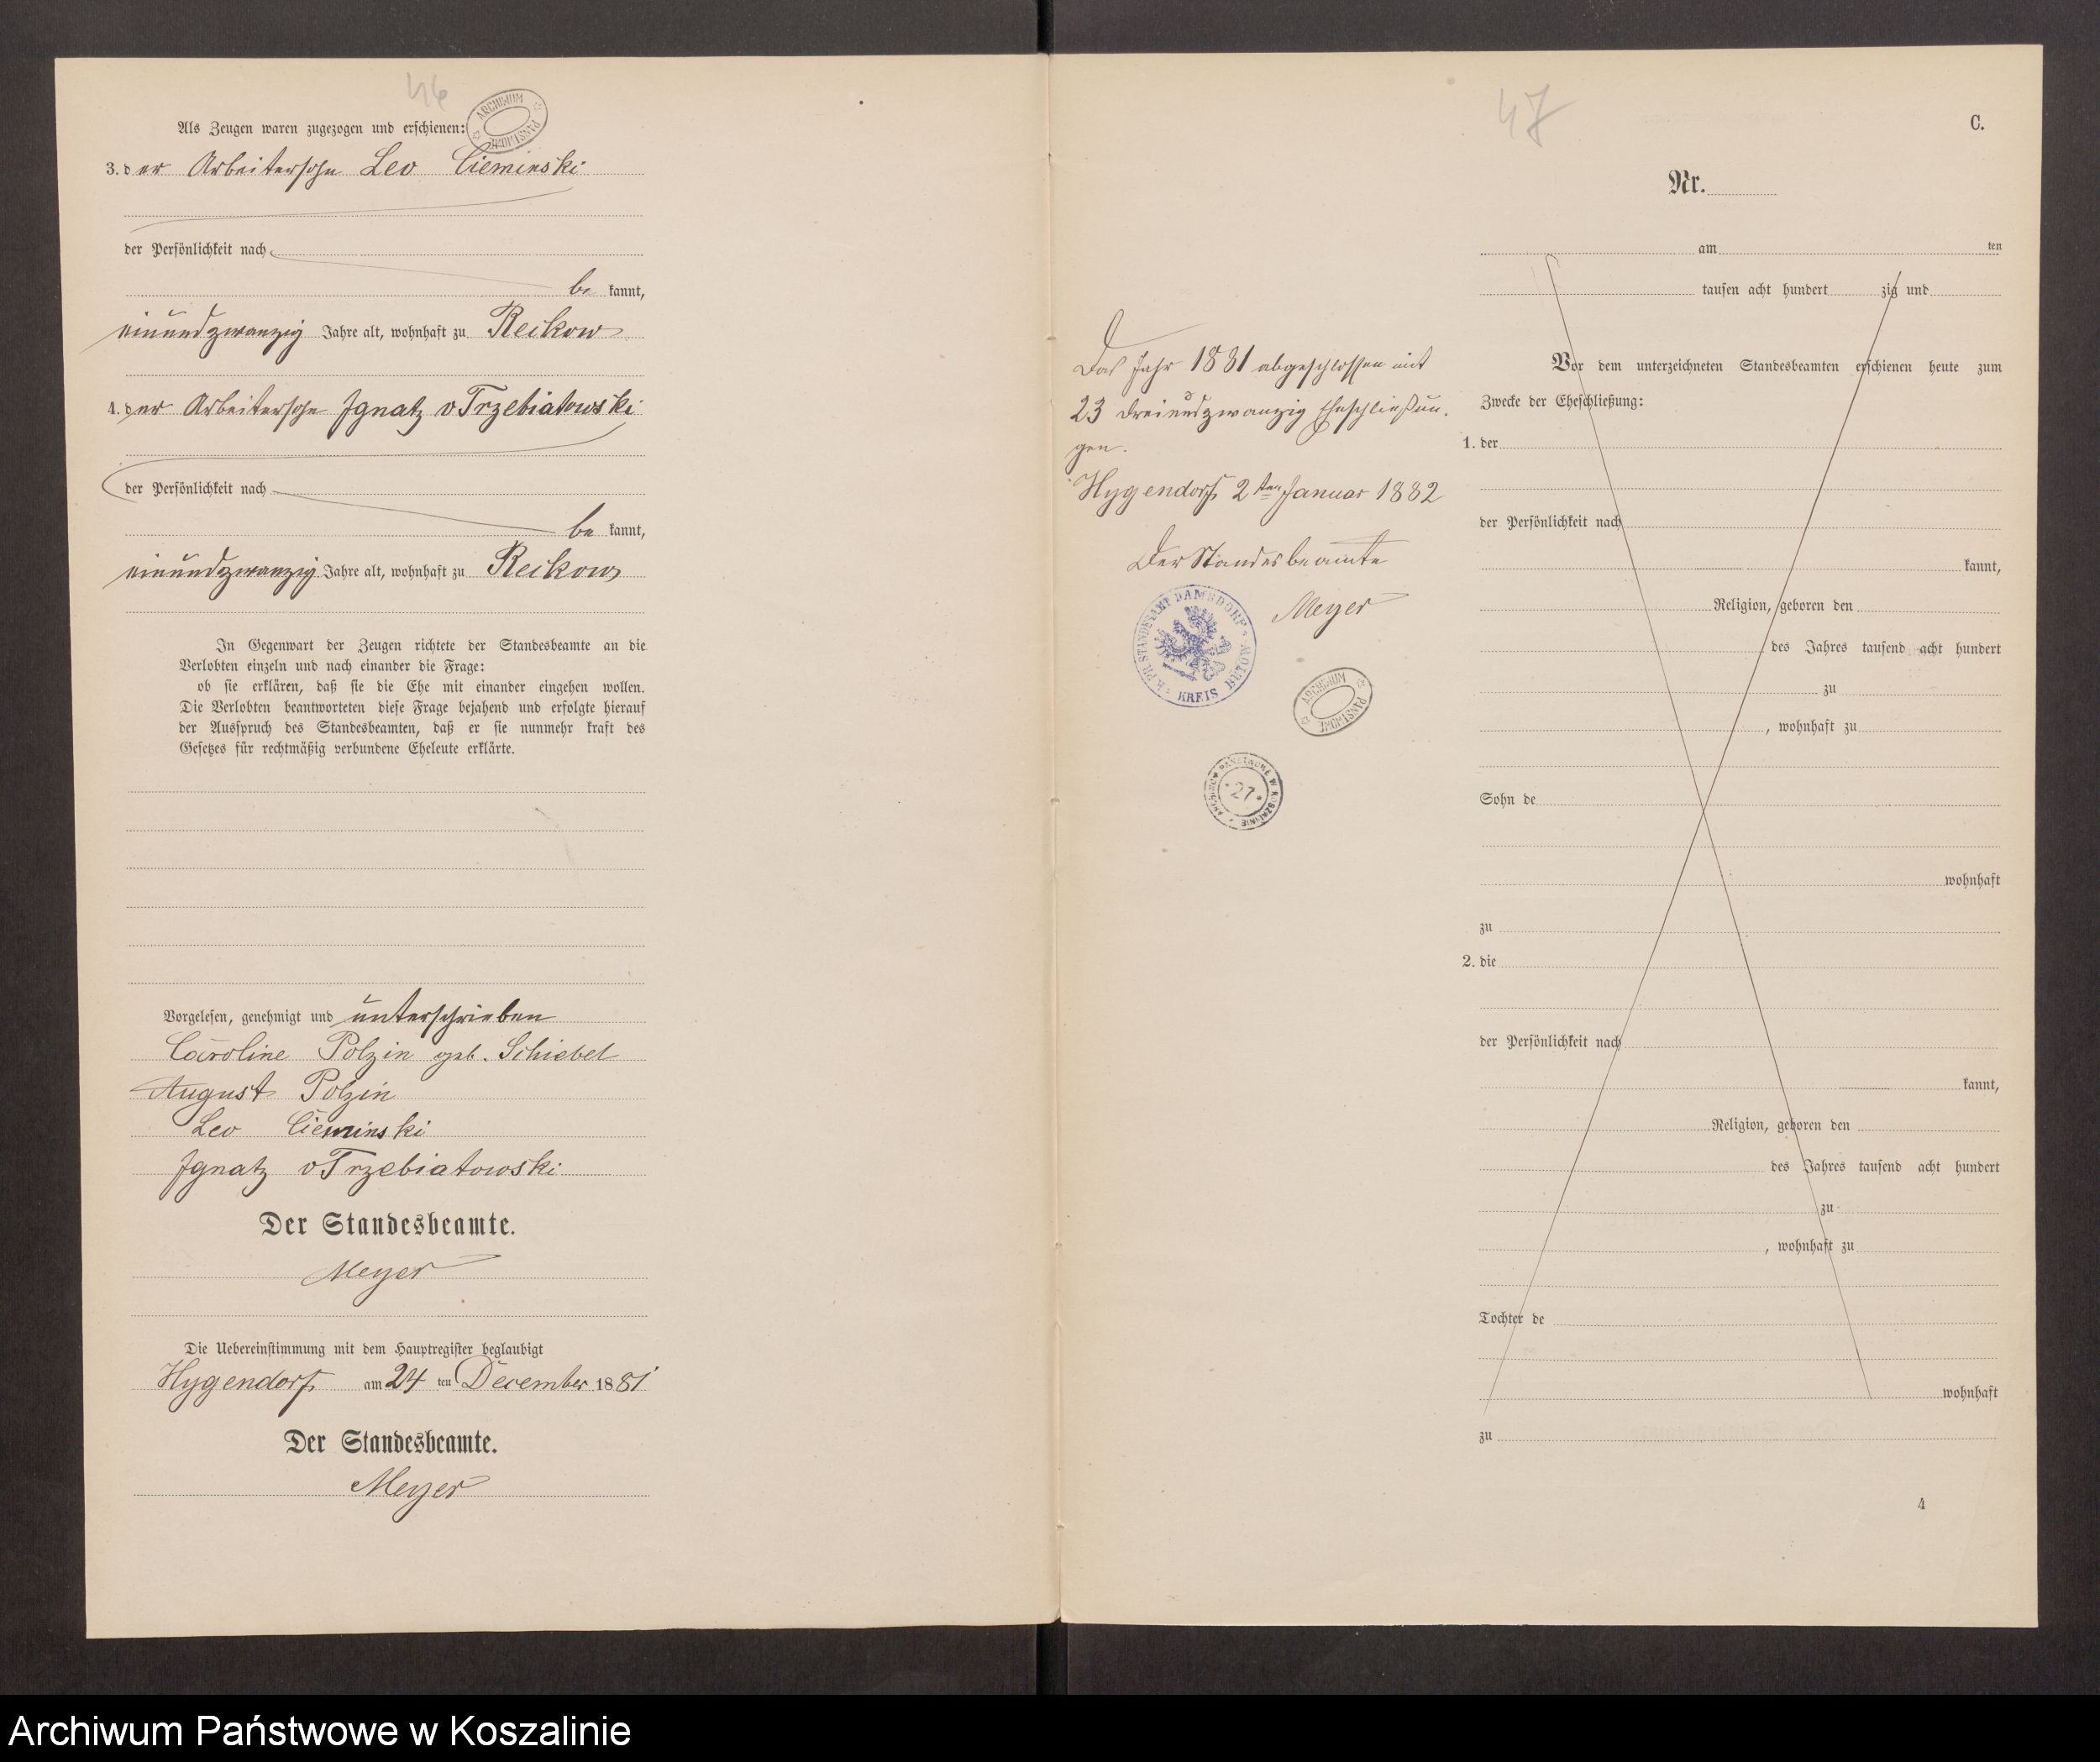 46
ARCHIWUM PAŃSTWOWE
Als Zeugen waren zugezogen und erschienen:
3. der Arbeitersohn Leo Cieminski
der Persönlichkeit nach
be kannt,
einundzwanzig Jahre alt, wohnhaft zu Reikow
4. der Arbeitersohn Ignatz v Trzebiatowski
der Persönlichkeit nach
be kannt,
einundzwanzig Jahre alt, wohnhaft zu Reikow
In Gegenwart der Zeugen richtete der Standesbeamte an die
Verlobten einzeln und nach einander die Frage:
ob sie erklären, daß sie die Ehe mit einander eingehen wollen.
Die Verlobten beantworteten diese Frage bejahend und erfolgte hierauf
der Ausspruch des Standesbeamten, daß er sie nunmehr kraft des
Gesetzes für rechtmäßig verbundene Eheleute erklärte.
Vorgelesen, genehmigt und unterschrieben
Caroline Polzin geb. Schiebel
August Polzin
Leo Cieminski
Ignatz v Trzebiatowski
Der Standesbeamte.
Meyer
Die Uebereinstimmung mit dem Hauptregister beglaubigt
Hygendorf am 24 ten December 1881
Der Standesbeamte.
Meyer
Das Jahr 1881 abgeschlossen mit
23 dreiundzwanzig Eheschließun-
gen.
Hygendorf 2ten Januar 1882
Der Standesbeamte
Meyer
K. PR. STANDESAMT DAMSDORF KREIS BÜTOW
ARCHIWUM PAŃSTWOWE
ARCHIWUM PAŃSTWOWE W KOSZALINIE 27
47
C.
Nr.
am ten
tausen acht hundert zig und
Vor dem unterzeichneten Standesbeamten erschienen heute zum
Zwecke der Eheschließung:
1. der
der Persönlichkeit nach
kannt,
Religion, geboren den
des Jahres tausend acht hundert
zu
, wohnhaft zu
Sohn de
wohnhaft
zu
2. die
der Persönlichkeit nach
kannt,
Religion, geboren den
des Jahres tausend acht hundert
zu
, wohnhaft zu
Tochter de
wohnhaft
zu
4
Archiwum Państwowe w Koszalinie